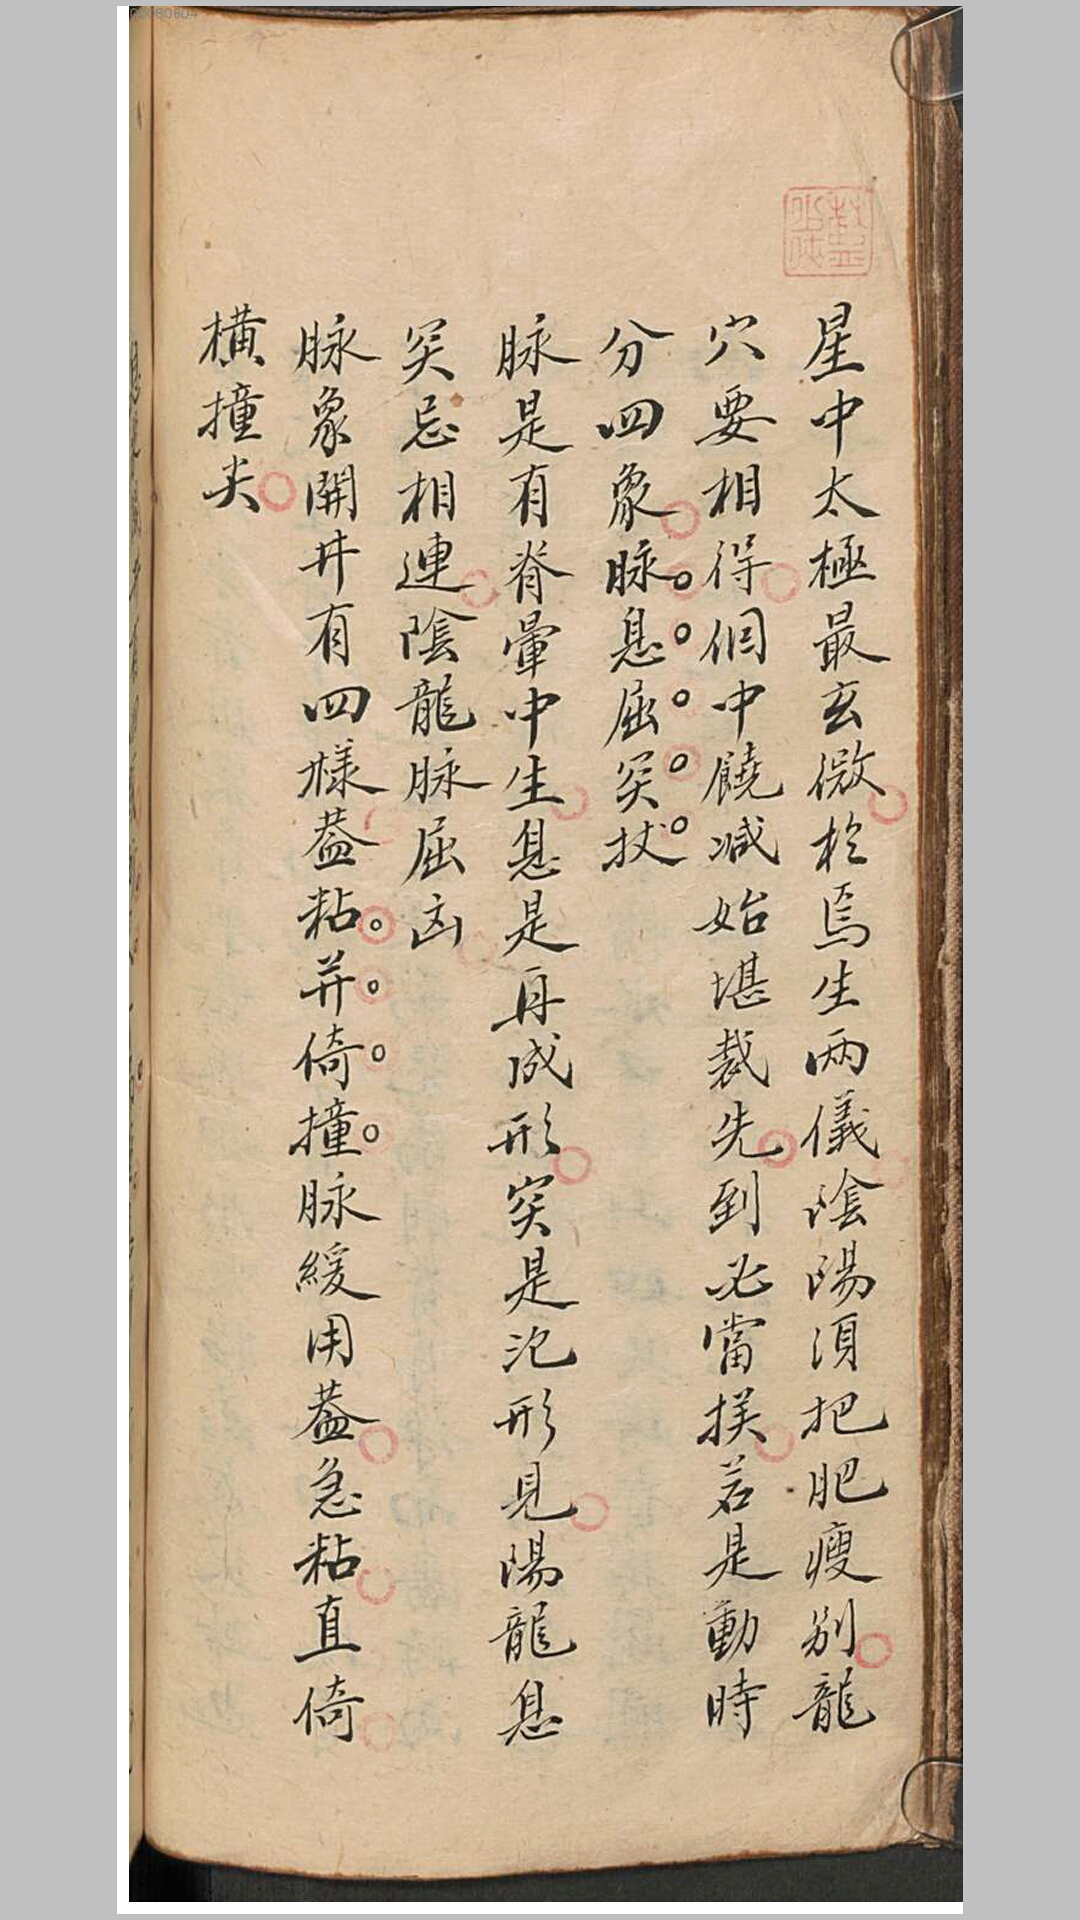 星中太極最玄微於焉生兩儀陰陽須把肥瘦別龍
穴要相得個中饒減始堪裁先到必當挨若是動時
分四象脉息屈突扙
脉是有脊暈中生息是再成形突是泡形見陽龍息
突忌相連陰龍脉屈凶
脉象開井有四樣蓋粘并倚撞脉緩用蓋急粘直倚
橫撞尖